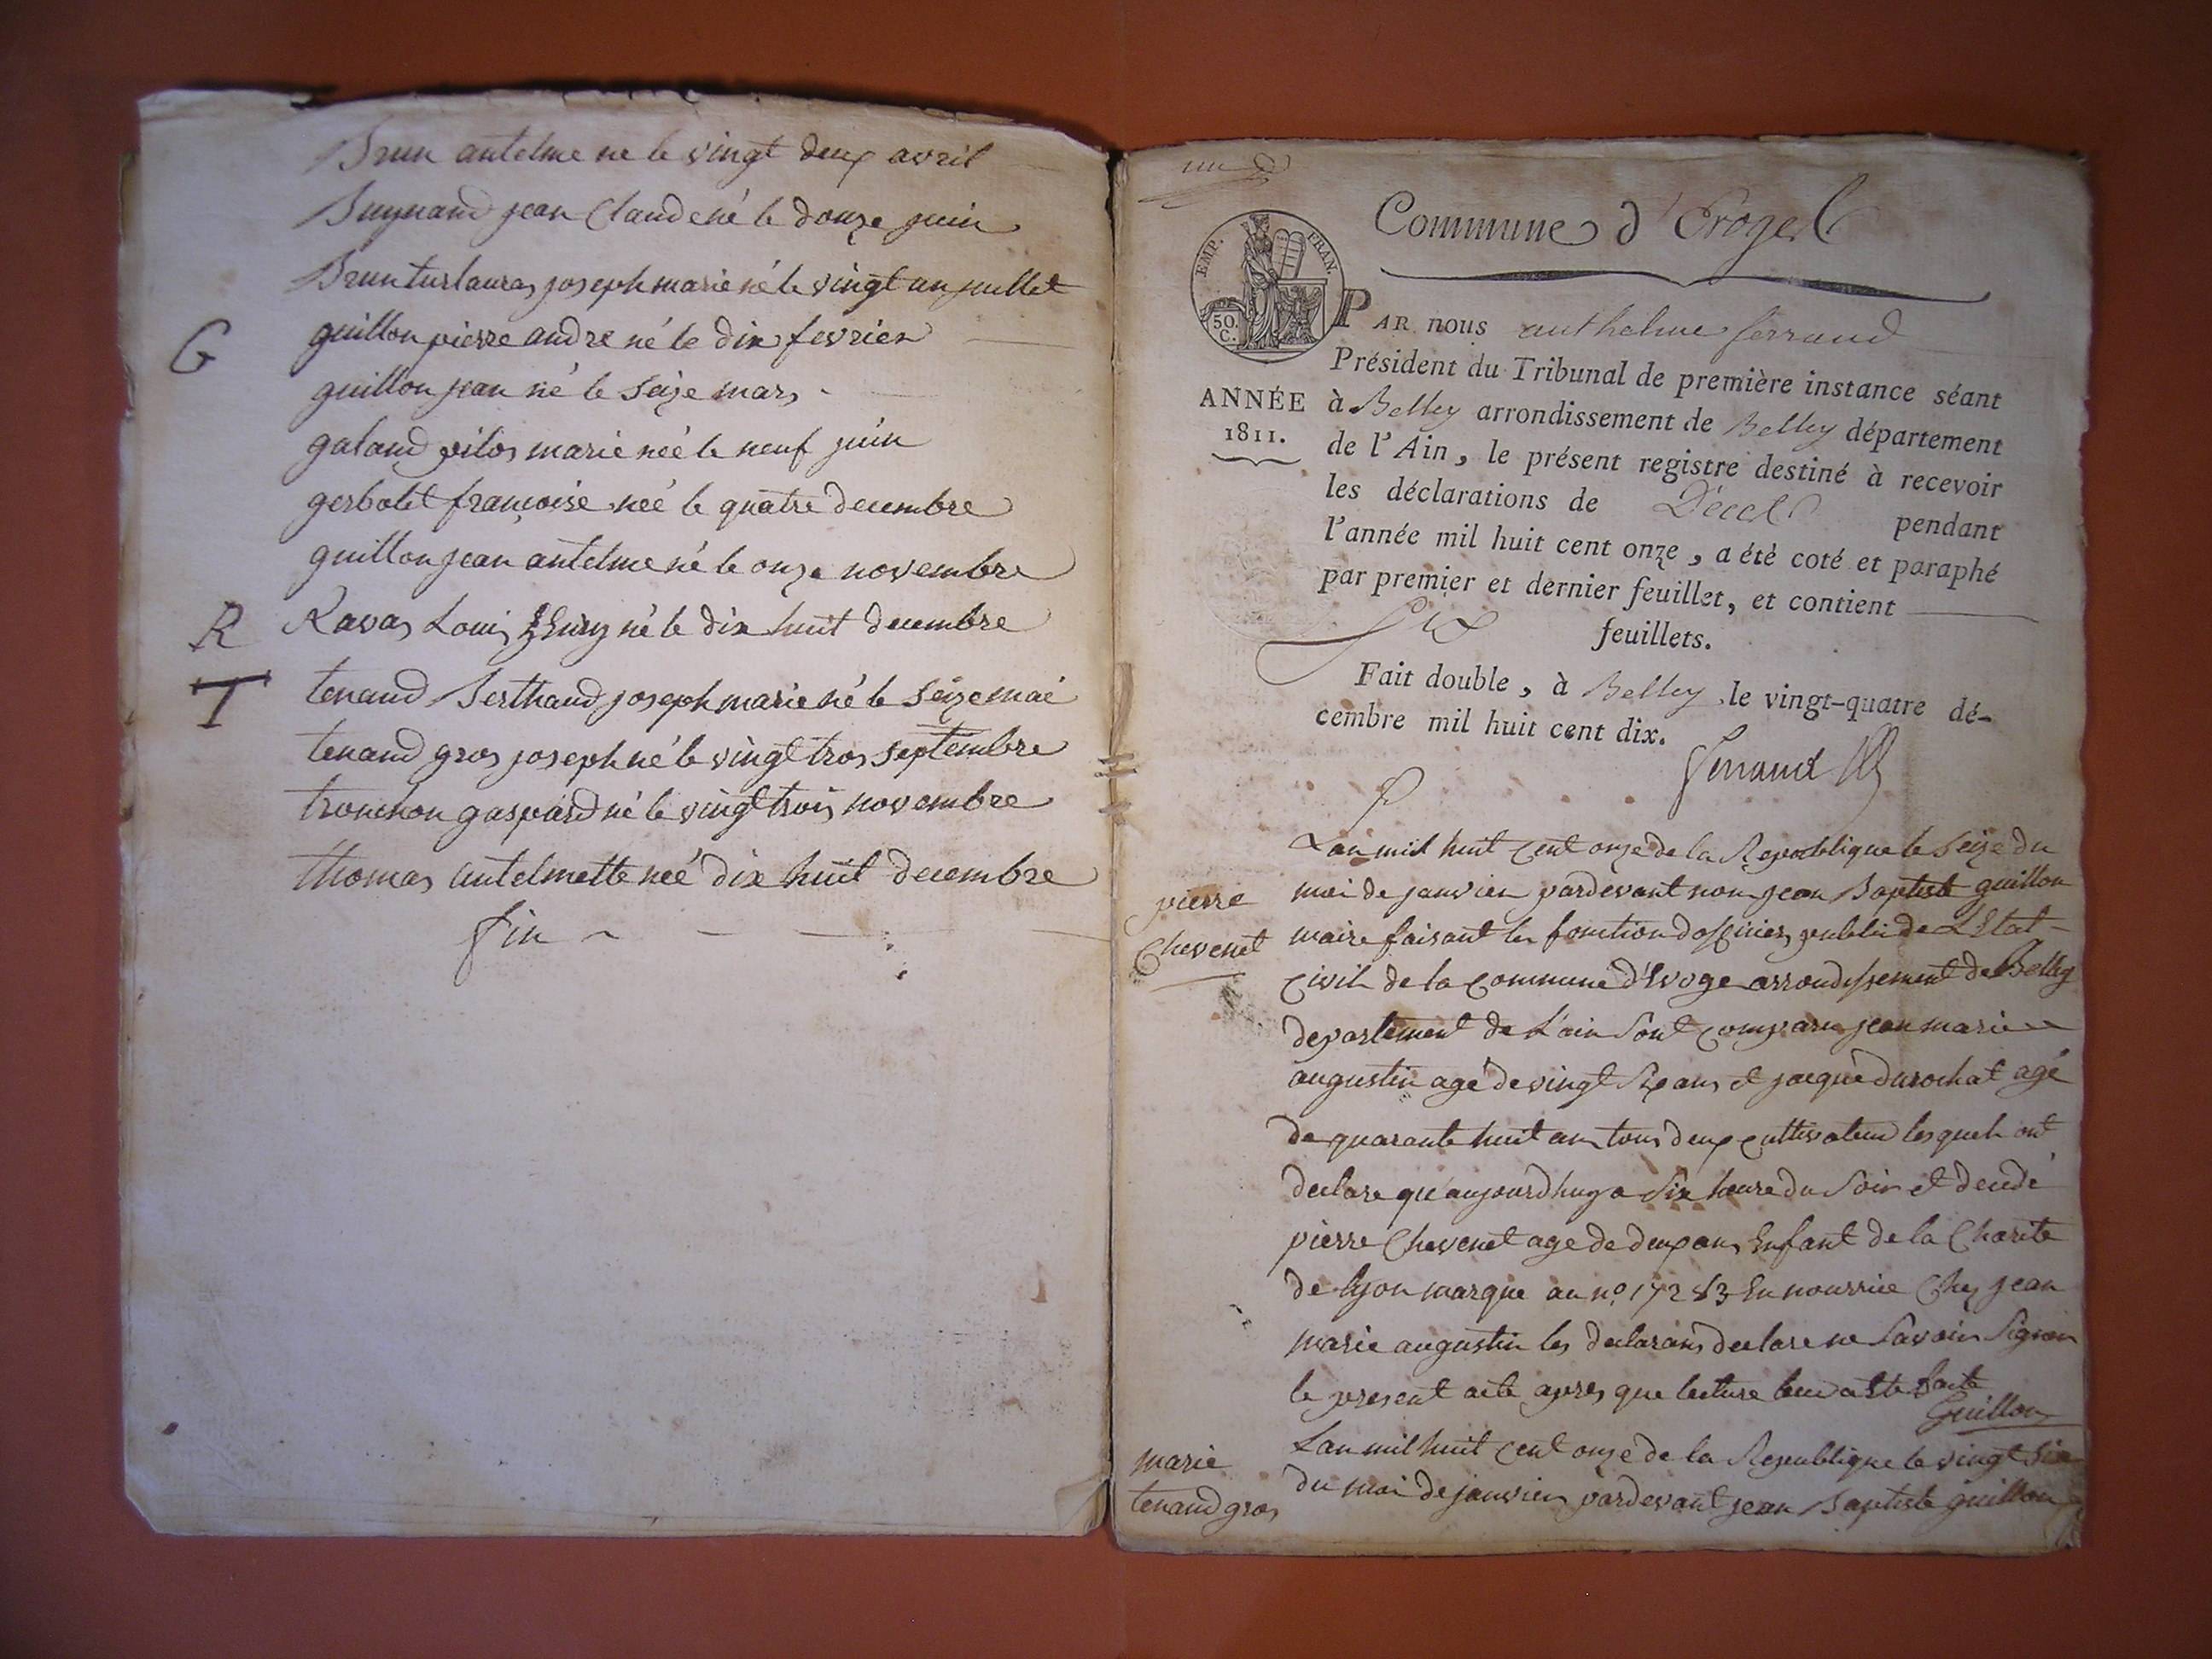 Brun antelme ne le vingt deux avril
Buynand jean Claude né le douze juin
Brun turlauras joseph marie né le vingt un juillet
G guillon pierre andre né le dix fevrier
guillon jean né le seize mars
galand pilos marie née le neuf juin
gerbolet françoise née le quatre decembre
guillon jean antelme né le onze novembre
R Ravas Louis né le dix huit decembre
T tenand Berthaud joseph marie né le seize mai
tenand gros joseph né le vingt tros septembre
tronchon gaspard né le vingt trois novembre
thomas antelmette née dix huit decembre
fin
un
Commune d'Evoges
EMP. FRAN.
50. C.
ANNÉE
1811.
PAR nous anthelme ferrand
Président du Tribunal de première instance séant
à Belley arrondissement de Belley département
de l'Ain, le présent registre destiné à recevoir
les déclarations de Décès pendant
l'année mil huit cent onze, a été coté et paraphé
par premier et dernier feuillet, et contient
Six feuillets.
Fait double, à Belley, le vingt-quatre dé-
cembre mil huit cent dix.
ferrand
pierre
Chevenet
Lan mil huit cent onze de la Republique le seize du
moi de janvier pardevant nous jean Baptiste guillon
maire faisant les fonction dofficier public de L'Etat
civil de la commune d'Evoge arrondissement de Belley
departement de L'ain sont comparu jean marie
augustin agé de vingt ans et jacque durochat agé
de quarante huit ans tous deux cultivateur lesquels ont
declare qu'aujourdhuy a six heure du soir et decedé
pierre Chevenet age de deux ans Enfant de la Charité
de lyon marque au no. 17283 En nourrice Chez jean
marie augustin les declarans declare ne savoir signer
le present acte apres que lecture leur a ete faite
Guillon
marie
tenand gros
Lan mil huit cent onze de la Republique le vingt six
du moi de janvier pardevant jean Baptiste guillon